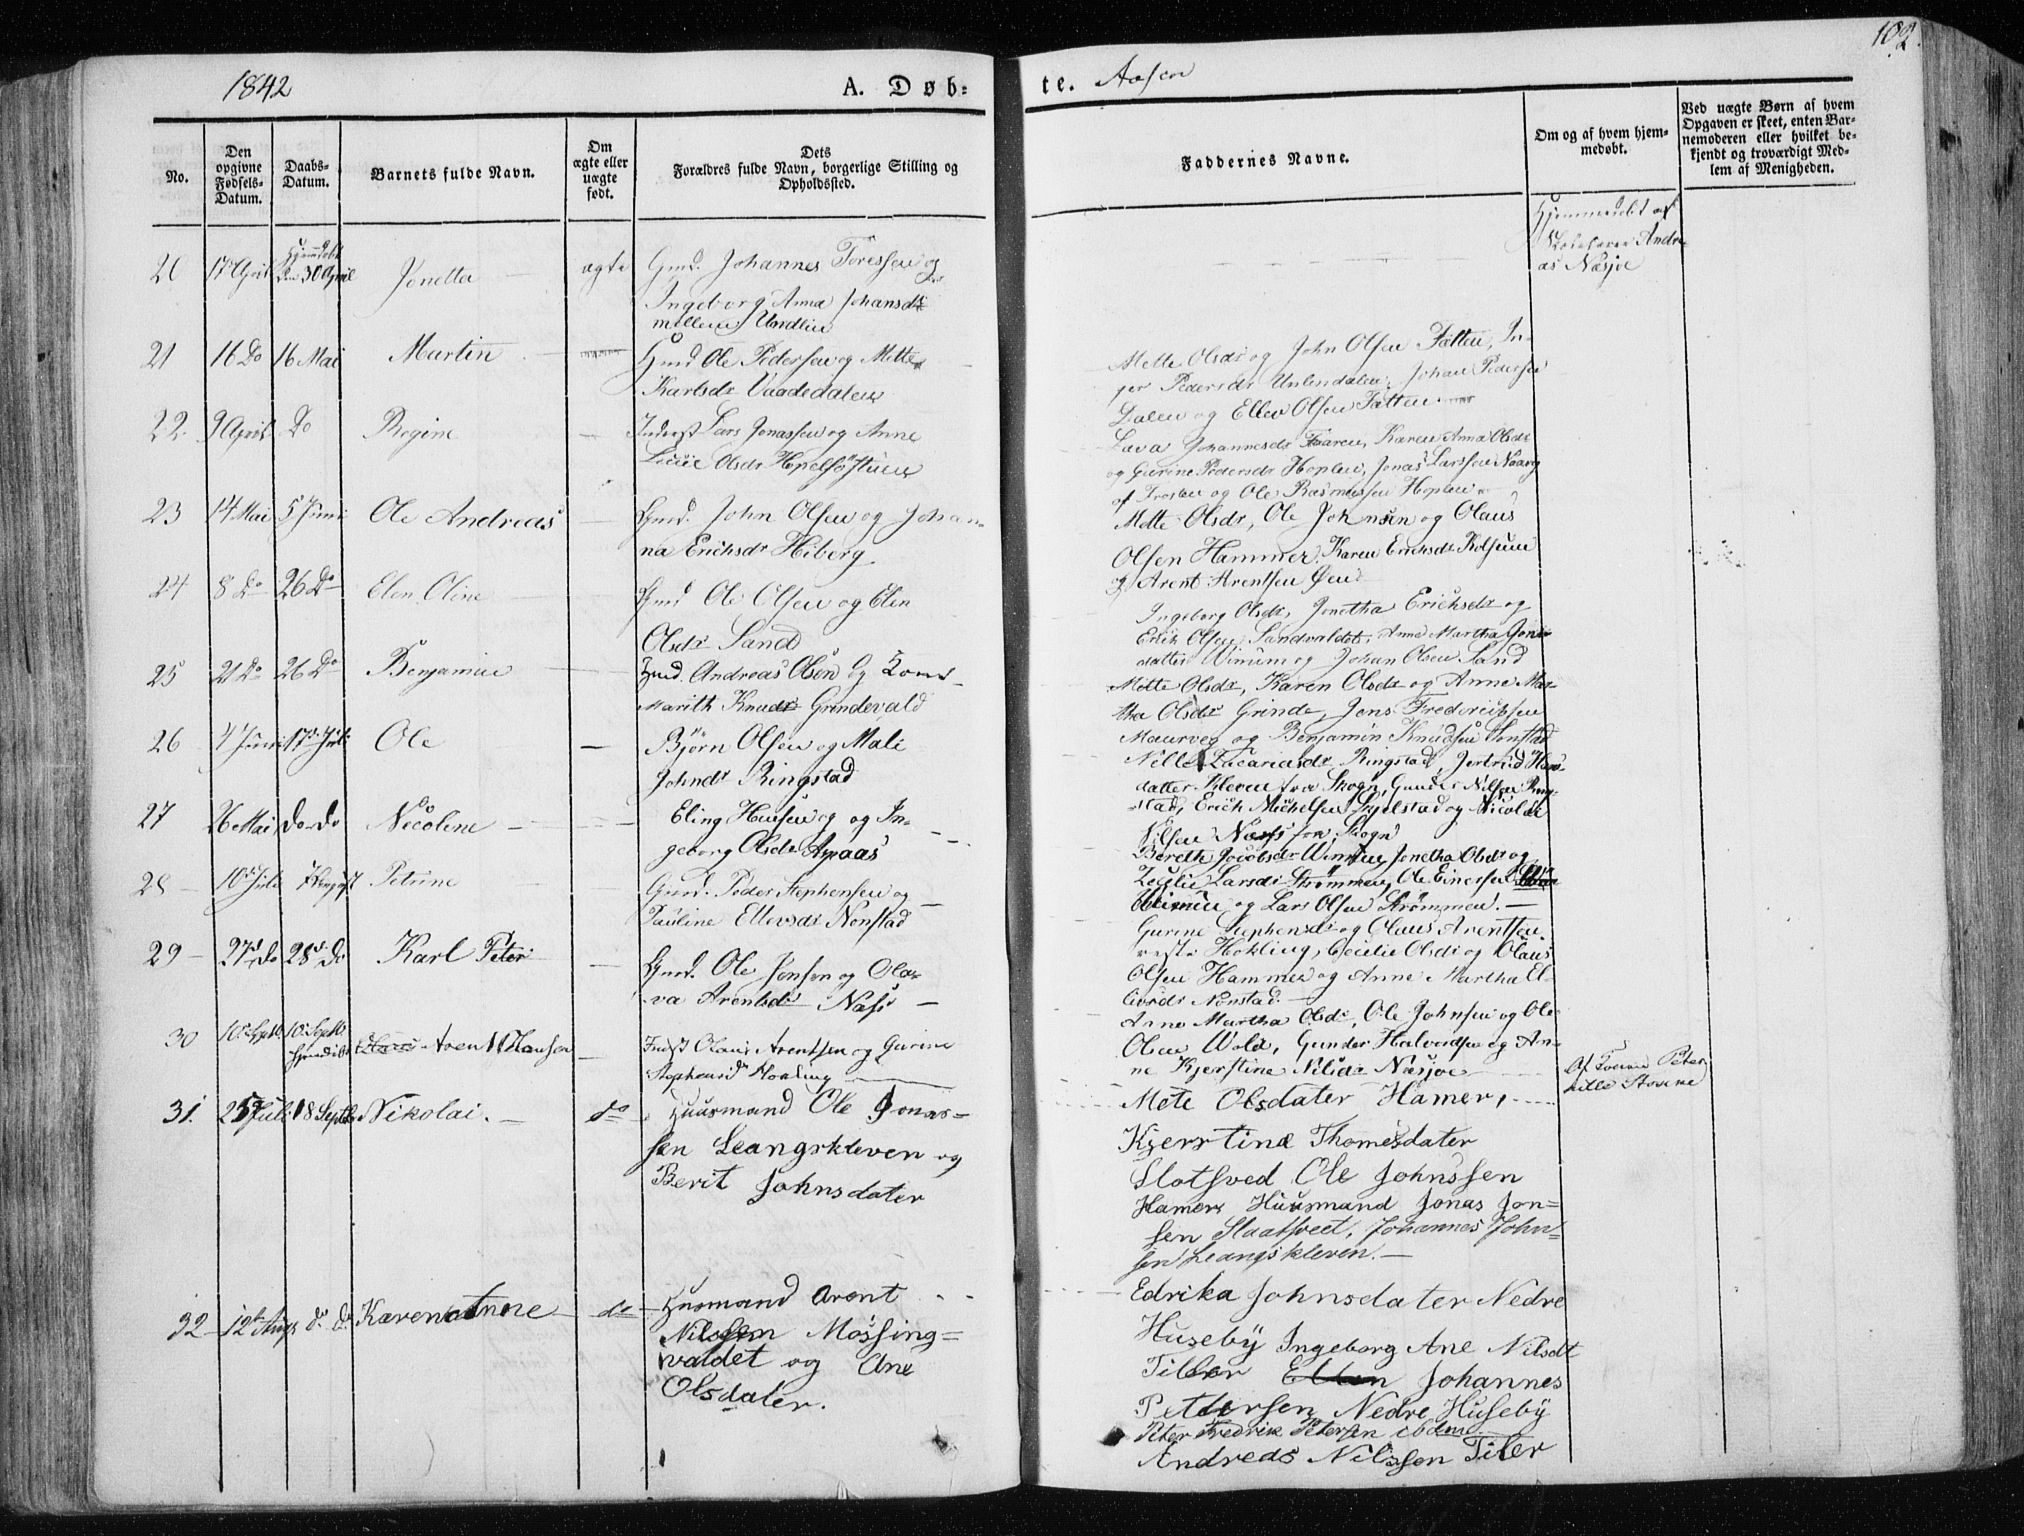 1842
A. Døb=
te. Aasen
102.
No.
Den
opgivne
Fødsels-
Datum.
Daabs-
Datum.
Barnets fulde Navn.
Om
ægte eller
uægte
født.
Dets
Forældres fulde Navn, borgerlige Stilling og
Opholdssted.
Faddernes Navne.
Om og af hvem hjem-
medøbt.
Ved uægte Børn af hvem
Opgaven er skeet, enten Bar-
nemoderen eller hvilket be-
kjendt og troværdigt Med-
lem af Menigheden.
20 17 April Hjemdøbt
den 30 April Jonetta ægte Gmd. Johannes Toressen og
Ingeborg Anna Johansdr
mellem
Hjemmedøbt af
Andre
as Næsjoe
21 16 Do 16 Mai Martin Hmd Ole Pedersen og Mette
Karlsdr Vaadedalen
Mette Olsdr og John Olsen Fatten, In-
ger Pedersdr Johan Pedersen
Dalen og Ellev Olsen Fatten
22 9 April Do Regine Inderst Lars Jonassen og Anne
Lucie Olsdr
Lava Johannesdr Karen Anna Olsdr
og Gurine Pedersdr Hoplen, Jonas Larssen
af Frosten og Ole Rasmussen Hoplen
23 14 Mai 5 Juni Ole Andreas Gmd. John Olsen og Johan-
na Erichsdr Hiberg
Mette Olsdr, Ole Johnsen og Olaus
Olsen Hammer, Karen Erichsdr
og Arent Arentsen Øen
24 8 Do 26 Do Elen Oline Hmd Ole Olsen og Elen
Olsdr Sand
Ingeborg Olsdr, Jonetha Erichsdr og
Erik Olsen Sandvaldet, Anne Martha Jons-
datter og Johan Olsen Sand
25 21 Do 26 Do Benjamin Hmd. Andreas Olsen Og
Marith Knudr Grindevald
Mette Olsdr, Karen Olsdr og Anne Mar-
tha Olsdr Grinde, Jens Fredrichsen
og Benjamin Knudsen
26 4 Juni 17de Juli Ole Bjørn Olsen og Mali
Johndr Ringstad
Zacariasdr Ringstad, Jertrud Hans-
datter Kleven fra Skogn, Gunder Nilsen Ring-
stad, Erich Michelsen og Nicolai
Nilsen Næss fra Skogn
27 26 Mai do do Nicoline Eling Hansen og In-
geborg Olsdr Aspaas
Bereth Jacobsdr Jonetha Olsdr og
Zecelie Larsdr Strømmen, Ole Einersen
og Lars Olsen Strømmen.
28 10de Juli 7 August Petrine Gmd. Peder Stephensen og
Pauline Ellevsdr Nonstad
Gurine Stephensdr og Olaus Arentsen
Hokling, Cecilie Olsdr og Olaus
Olsen Hammer og Anne Martha El-
levsdr Nonstad.
29 27de do 28de do Karl Peter Gmd. Ole Jonsen og Ola-
va Arentsdr Næss
Anne Martha Olsdr, Ole Johnsen og Ole
Olsen Wold, Gunder Halvordsen og An-
ne Kjerstine Nilsdr Næsjoe
30 10 Septb. 10 Septb.
hjemdøbt Arent Hansen Olaus Arentsen og Gurine
Stephensdr Hokling
Af Peter-
nille Stavne
31. 25 Juli 18 Septb. Nikolai. do Huusmand Ole Jonas=
sen Leangskleven og
Berit Johnsdater
Mete Olsdater Hamer,
Kjerstine Thomesdater
Slotsved Ole Johnssen
Hamer Huusmand Jonas Jon=
sen Slaatsveet, Johannes John=
sen Leangskleven.
32 12te Aug do do Karen Anne do Husmand Arent
Nilssen Mossing=
valdet og Ane
Olsdater.
Edrika Johnsdater Nedre
Huseby Ingeborg Ane Nilsdt
Tiller Johannes
Pettersen Nedre Huseby
Peter Fredrik Petersen ibdm
Andreas Nilssen Tiler